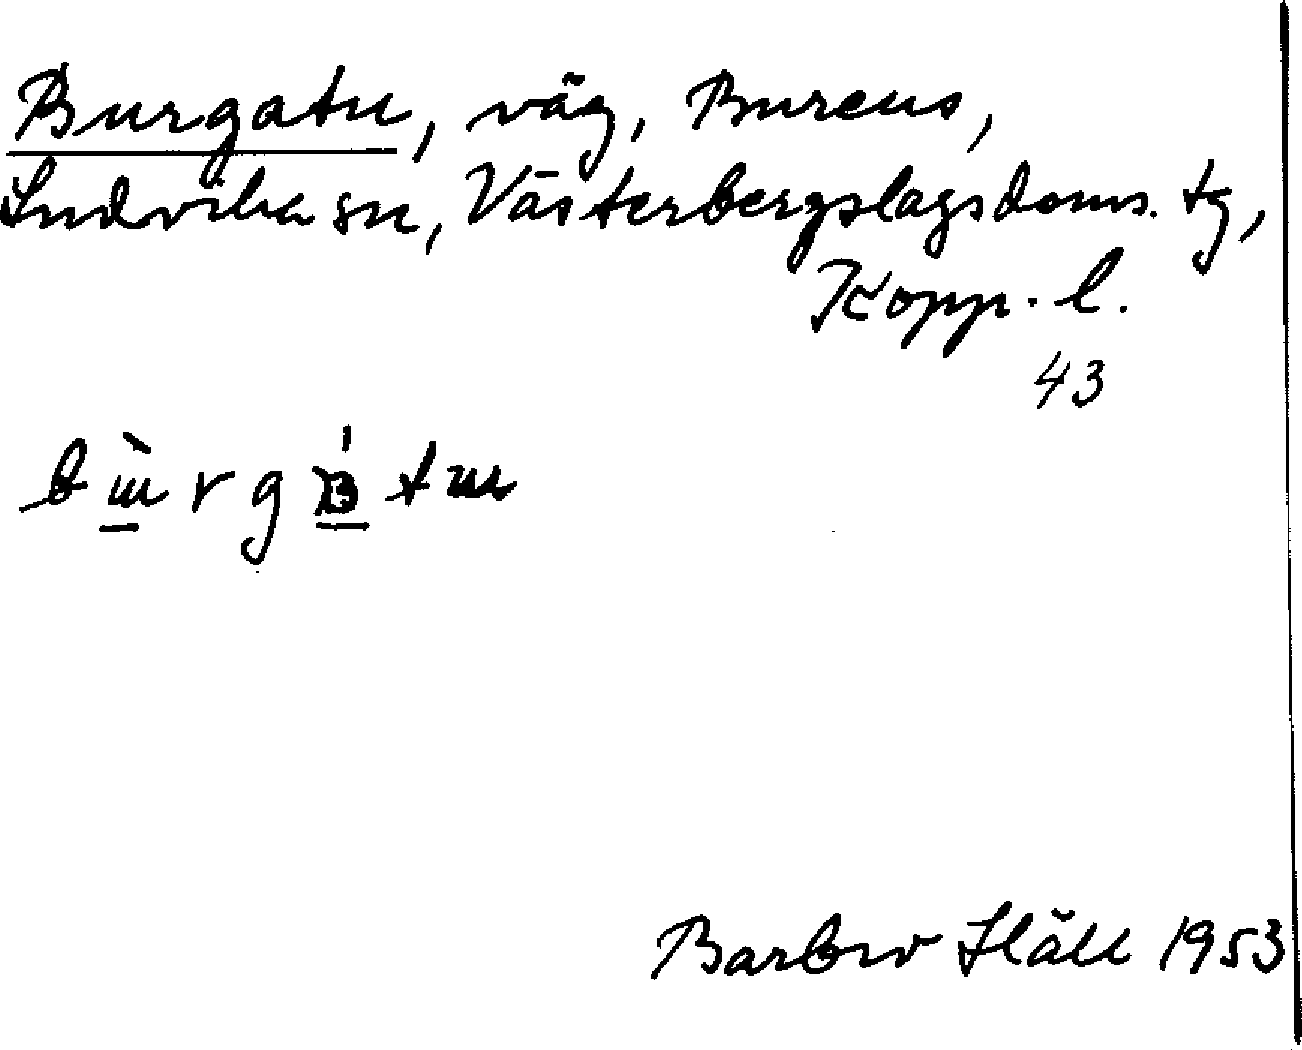 Burgatu, väg, Bureus,
Ludvika sn, Västerbergslags doms. tg,
Kopp. l.
43
Barbro Häll 1953